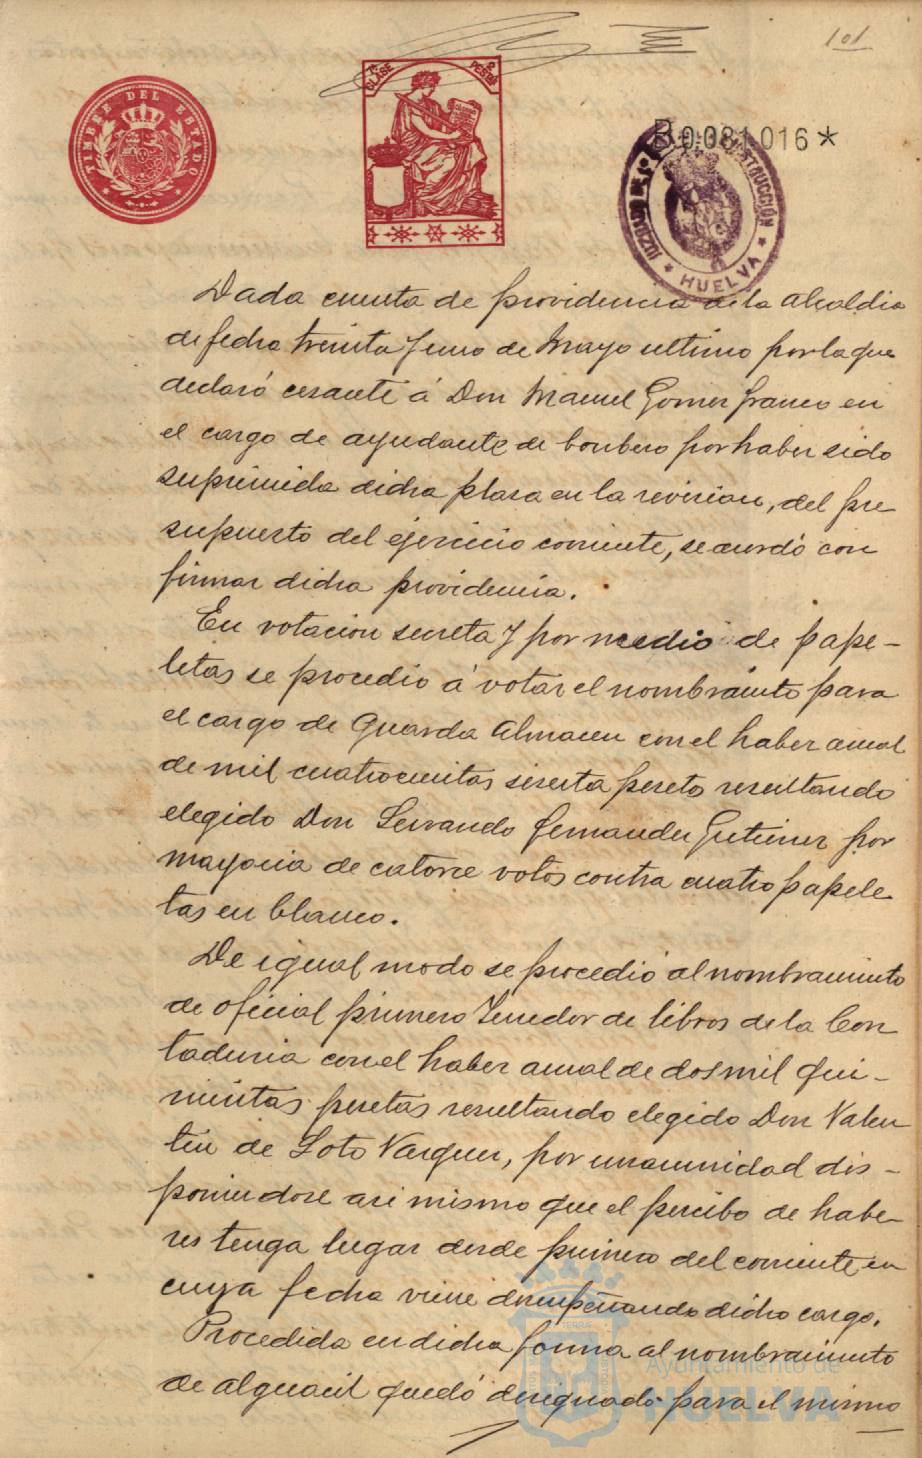 101
TIMBRE DEL ESTADO
1ª CLASE
2 PESETAS
B0081016*
JUZGADO DE 1ª INSTRUCCIÓN
* HUELVA *
Dada cuenta de providencia de la Alcaldia
de fecha treinta y uno de Mayo ultimo por la que
declaró cesante á Don Manuel Gomez Franco en
el cargo de ayudante de bombero por haber sido
suprimida dicha plaza en la revision, del pre
supuesto del ejercicio corriente, se acordó con
firmar dicha providencia.
En votacion secreta y por medio de pape-
letas se procedio á votar el nombramiento para
el cargo de Guarda Almacen con el haber anual
de mil cuatrocientas sesenta pesetas resultando
elegido Don Servando Fernandez Gutierrez por
mayoria de catorce votos contra cuatro papele
tas en blanco.
De igual modo se procedió al nombramiento
de oficial primero Tenedor de libros de la Con
taduria con el haber anual de dos mil qui-
nientas pesetas resultando elegido Don Valen
tin de Soto Vazquez, por unanimidad dis-
poniendose asi mismo que el percibo de habe-
res tenga lugar desde primero del corriente en
cuya fecha viene desempeñando dicho cargo.
Procedida en dicha forma al nombramiento
de alguacil quedó designado para el mismo
Ayuntamiento de
HUELVA